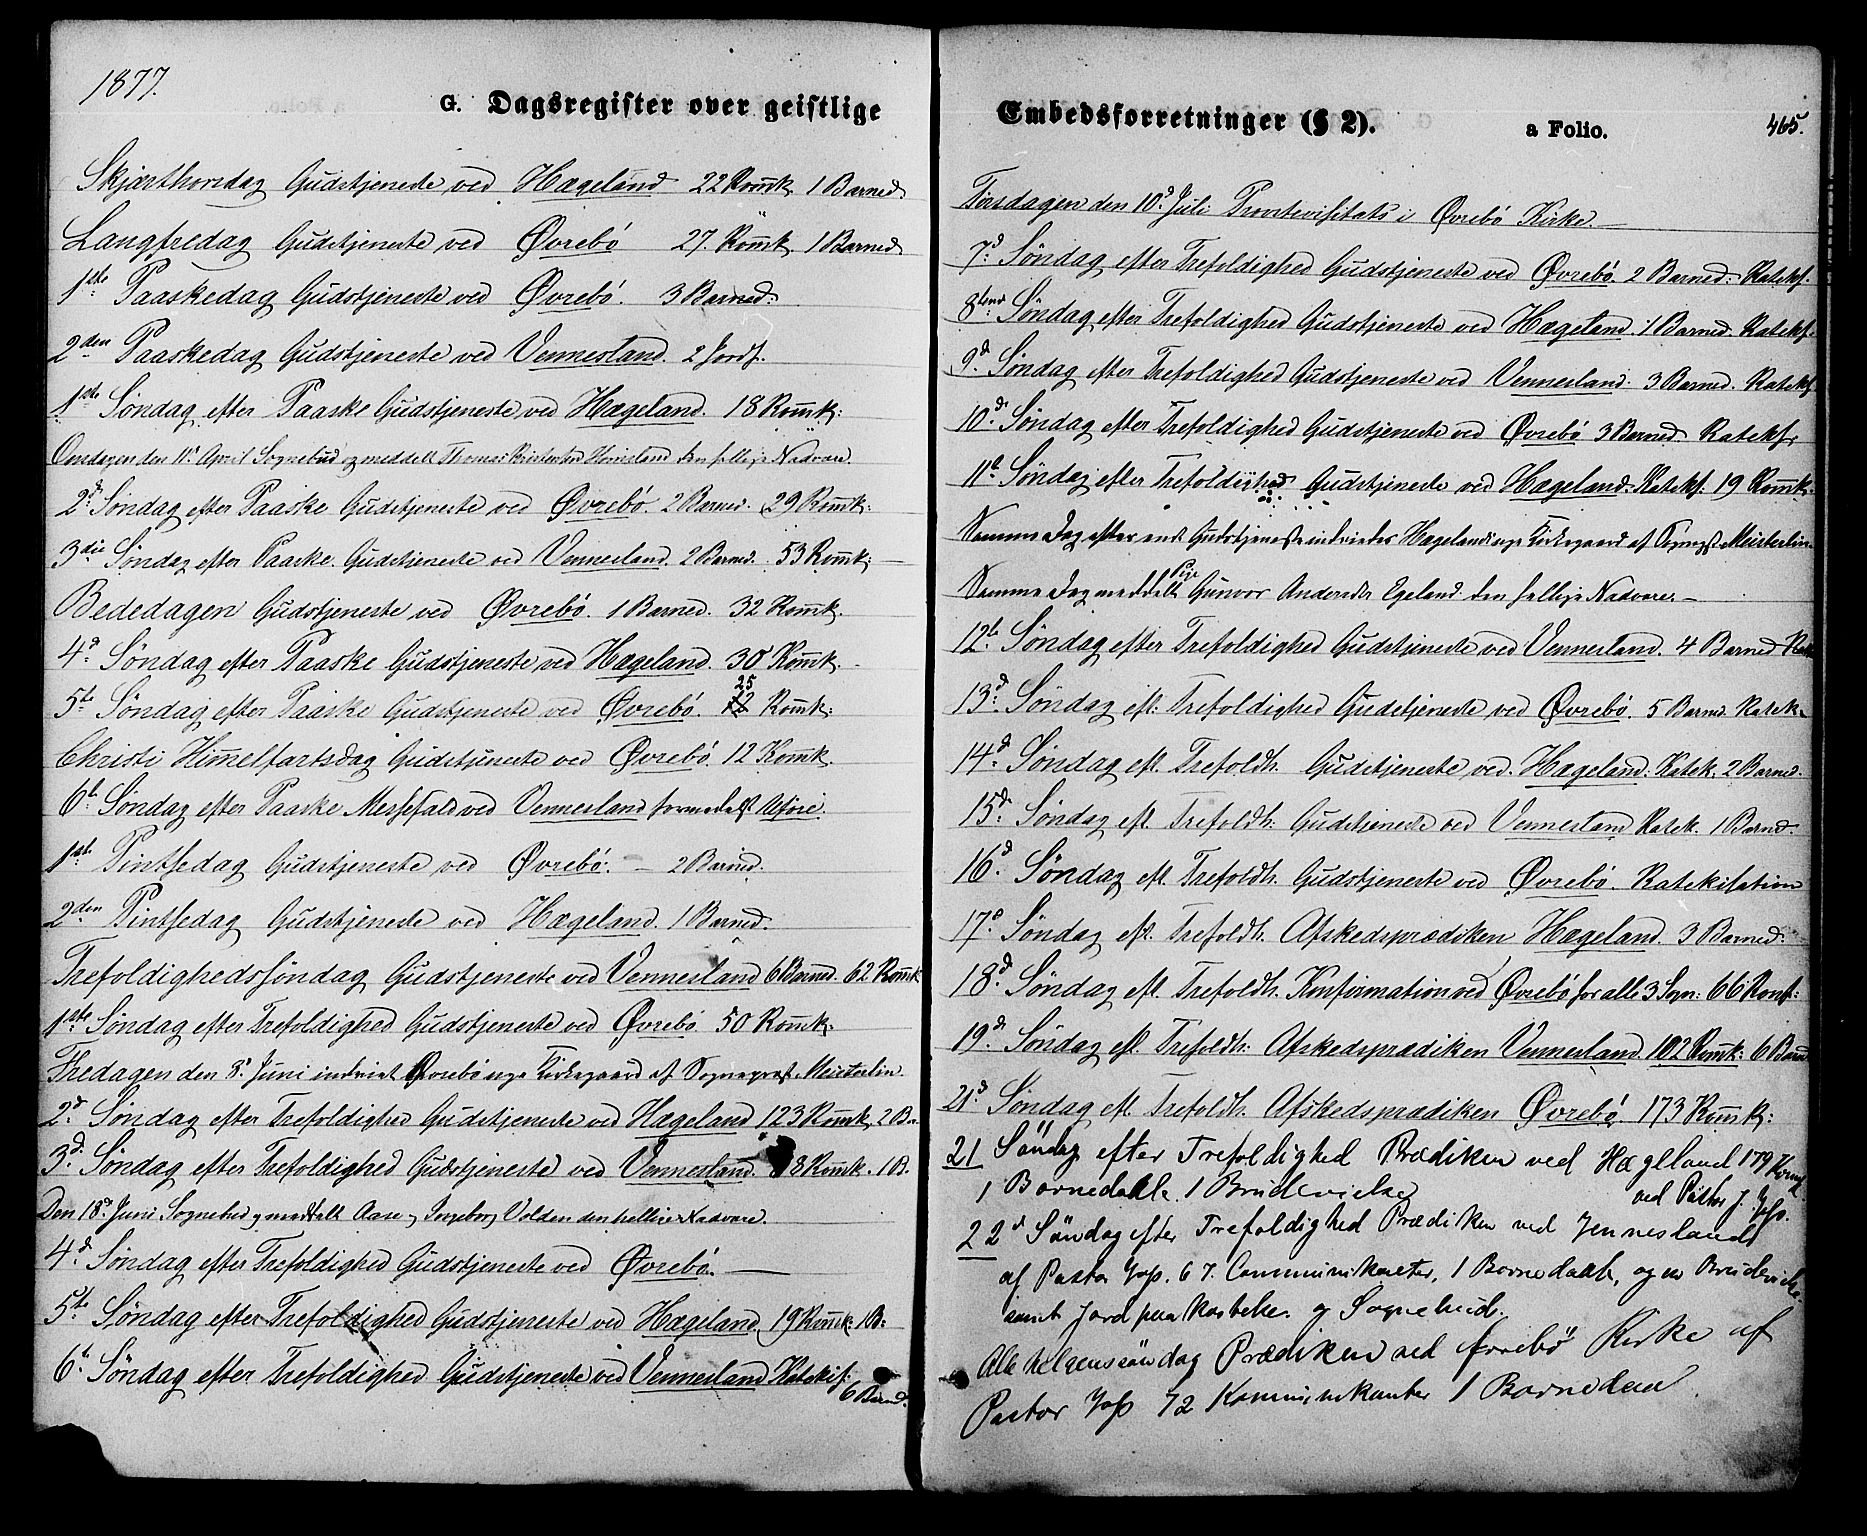 1877.
G. Dagsregister over geistlige
Skjærthorsdag Gudstjeneste ved Hægeland 22 Komk. 1 Barned
Langfredag Gudstjeneste ved Øvrebö 27. Komk 1 Barned
1ste Paaskedag Gudstjeneste ved Øvrebö. 3 Barned:
2den Paaskedag Gudstjeneste ved Vennesland. 2 Jordf.
1ste Söndag efter Paaske Gudstjeneste ved Hægeland. 18 Komk:
Onsdagen den 11t April Sognebud og meddelt Thomas den hellige Nadvere.
2d Söndag efter Paaske Gudstjeneste ved Øvrebö. 2 Barned. 29 Komk:
3die Söndag efter Paaske. Gudstjeneste ved Vennesland. 2 Barned. 53 Komk:
Bededagen Gudstjeneste ved Øvrebö. 1 Barned. 32 Komk.
4d Söndag efter Paaske Gudstjeneste ved Hægeland. 30 Komk.
5te Söndag efter Paaske Gudstjeneste ved Øvrebö. 25 Komk:
Christi Himmelfartsdag Gudstjeneste ved Øvrebö 12 Komk.
6te Söndag efter Paaske Messefald ved Vennesland formedelst Uföre.
1ste Pintsedag Gudstjeneste ved Øvrebö. – 2 Barned.
2den Pintsedag Gudstjeneste ved Hægeland. 1 Barned.
Trefoldighedssöndag Gudstjeneste ved Vennesland 6 Barned. 62 Komk
1ste Söndag efter Trefoldighed Gudstjeneste ved Øvrebö 50 Komk.
Fredagen den 8d Juni indviet Øvrebö nye Kirkegaard af Sognepræst Meisterlin.
2d Söndag efter Trefoldighed Gudstjeneste ved Hægeland 123 Komk. 2 B.
3d Söndag efter Trefoldighed Gudstjeneste ved Vennesland. 8 Komk. 1 B.
Den 18d Juni Sognebud og meddelt Aase og Ingeborg Volden den hellige Nadvere.
4d Söndag efter Trefoldighed Gudstjeneste ved Øvrebö. —
5te Söndag efter Trefoldighed Gudstjeneste ved Hægeland. 19 Komk. 1 B:
6te Söndag efter Trefoldighed Gudstjeneste ved Vennesland Katekis:
6 Barned.
Embedsforretninger (§ 2). a Folio. 465.
Tirsdagen den 10d Juli Provstevisitats i Øvrebö Kirke. —
7d Söndag efter Trefoldighed Gudstjeneste ved Øvrebö. 2 Barned: Kateks.
8tend Söndag efter Trefoldighed Gudstjeneste ved Hægeland. 1 Barned. Kateks.
9d Söndag efter Trefoldighed Gudstjeneste ved Vennesland. 3 Barned. Kateks
10d Söndag efter Trefoldighed Gudstjeneste ved Øvrebö 3 Barned Kateks
11te Söndag efter Trefoldighed Gudstjeneste ved Hægeland. Kateks. 19 Komk.
Samme Dag efter endt Gudstjeneste indviedes Hægelands nye Kirkegaard af Sognepst Meisterlin.
Samme Dag meddelt Pige Gunvor Andersdtr Egeland den hellige Nadvere. —
12te Söndag efter Trefoldighed Gudstjeneste ved Vennesland. 4 Barned Kate
13d Söndag eft: Trefoldighed Gudstjeneste ved Øvrebö. 5 Barned. Katek.
14d Söndag eft. Trefoldh. Gudstjeneste ved. Hægeland: Katek. 2 Barned.
15d Söndag eft. Trefoldh. Gudstjeneste ved Vennesland Katek. 1 Barned.
16d Söndag eft. Trefoldh. Gudstjeneste ved Øvrebö. Katekisation
17d Söndag eft. Trefoldh. Afskedsprædiken Hægeland. 3 Barned.
18d Söndag eft. Trefoldh. Konfirmation ved Øvrebö for alle 3 Sogn: 66 Konf:
19d Söndag eft. Trefoldh: Afskedsprædiken Vennesland. 102 Komk: 6 Barned
21d Söndag eft. Trefoldh. Afskedsprædiken Øvrebö. 173 Komk:
21 Söndag efter Trefoldighed Prædiken ved Hægeland 179 Komk
1 Barnedaab. 1 Brudevielse ved Pastor J.
22d Söndag efter Trefoldighed Prædiken ved Vennesland
af Pastor 67. Communikanter, 1 Barnedaab, og en Brudevielse
samt Jordpaakastelse. og Sognebud.
Allehelgenssöndag Prædiken ved Øvrebö Kirke af
Pastor 72 Kommunikanter 1 Barnedaab